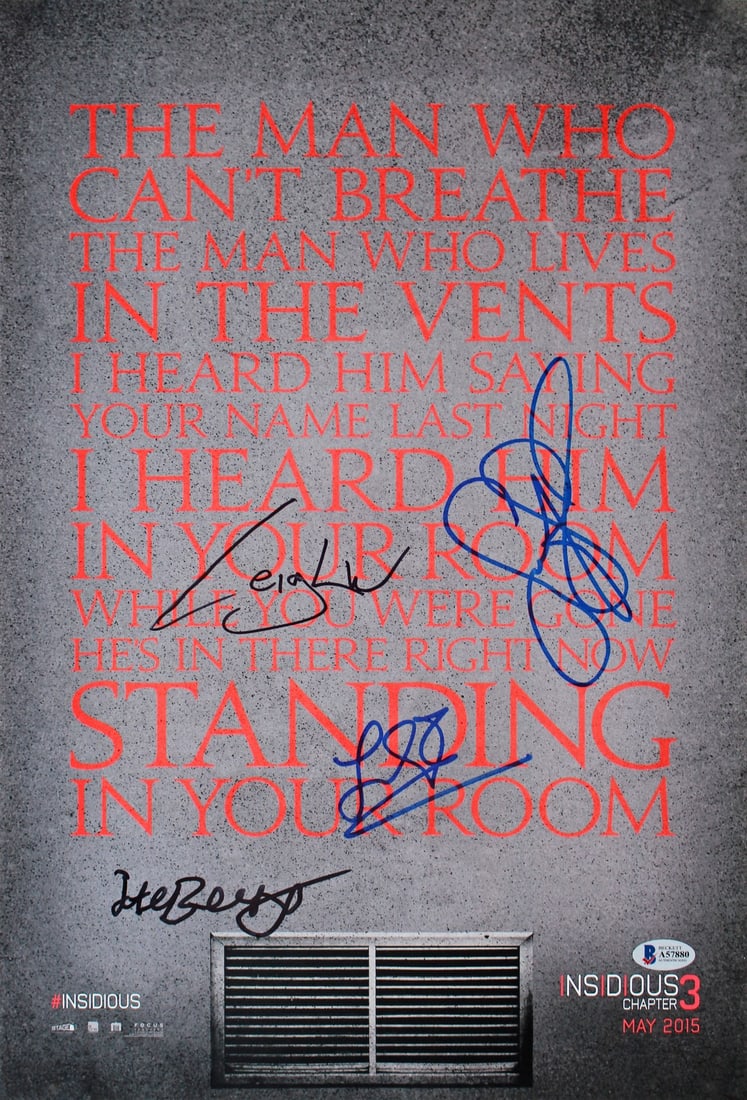 THE MAN WHO
CAN'T BREATHE
THE MAN WHO LIVES
IN THE VENTS
I HEARD HIM SAYING
YOUR NAME LAST NIGHT
I HEARD HIM
IN YOUR ROOM
WHILE YOU WERE GONE
HE'S IN THERE RIGHT NOW
STANDING
IN YOUR ROOM
Leigh W
BECKETT
A57880
#INSIDIOUS
INSIDIOUS
CHAPTER 3
MAY 2015
FOCUS